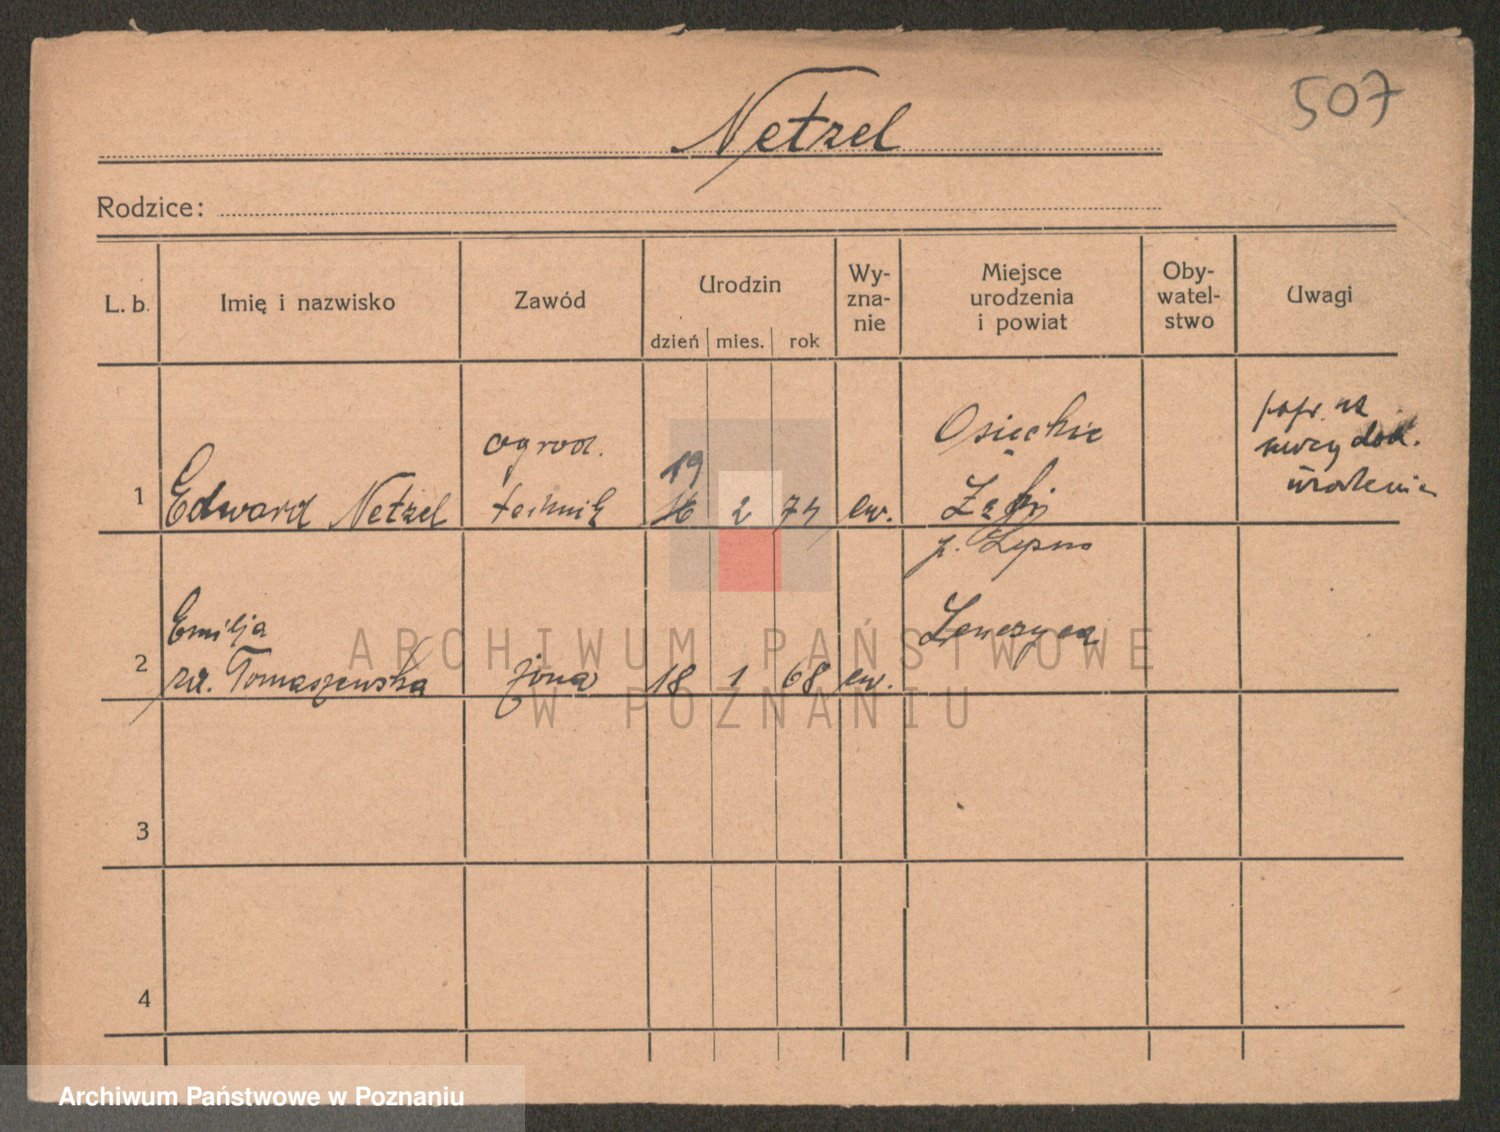 507
Netzel
Rodzice:
L. b.
Imię i nazwisko
Zawód
Urodzin
dzień mies. rok
Wy-
zna-
nie
Miejsce
urodzenia
i powiat
Oby-
watel-
stwo
Uwagi
1
Edward Netzel
ogrod.
technik
19
16 2 74
ew.
Osieckie
p. Lipno
na
mocy dok.
urodzenia
2
Emilja
Tomaszewska
żona
18 1 68
ew.
Lenczyca
3
4
ARCHIWUM PAŃSTWOWE
W POZNANIU
Archiwum Państwowe w Poznaniu